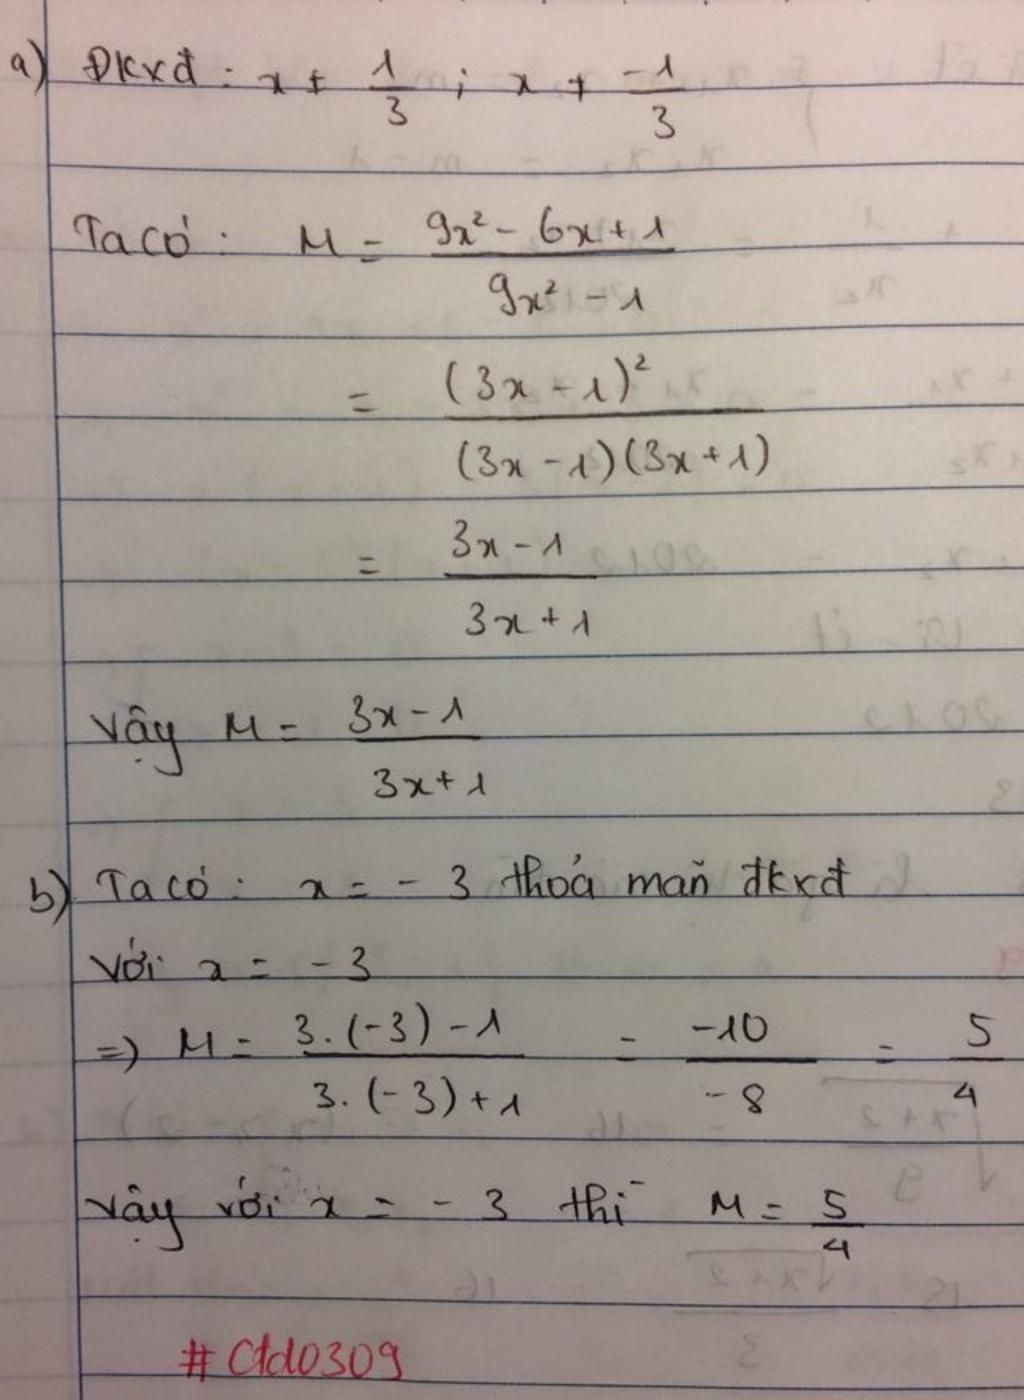 a) Đkxđ: x ≠ 1/3 ; x ≠ -1/3
Ta có: M = (9x² - 6x + 1)/(9x² - 1)
= (3x - 1)²/((3x - 1)(3x + 1))
= (3x - 1)/(3x + 1)
Vậy M = (3x - 1)/(3x + 1)
b) Ta có: x = -3 thỏa mãn đkxđ
Với x = -3
=> M = (3.(-3) - 1)/(3.(-3) + 1) = -10/-8 = 5/4
Vậy với x = -3 thì M = 5/4
# Ctd0309